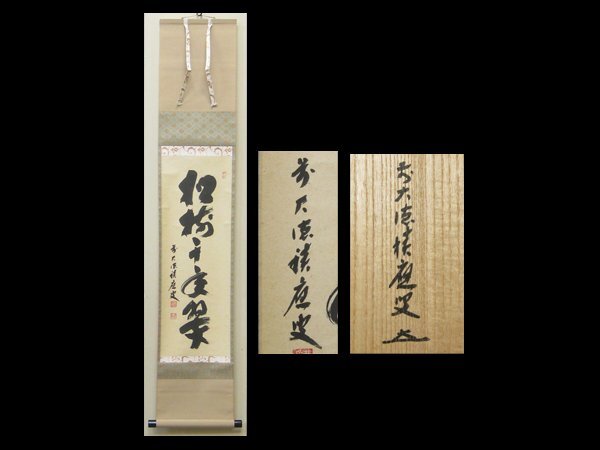 松樹千年翠
前大徳積應叟
前大徳積應叟
前大徳積應叟